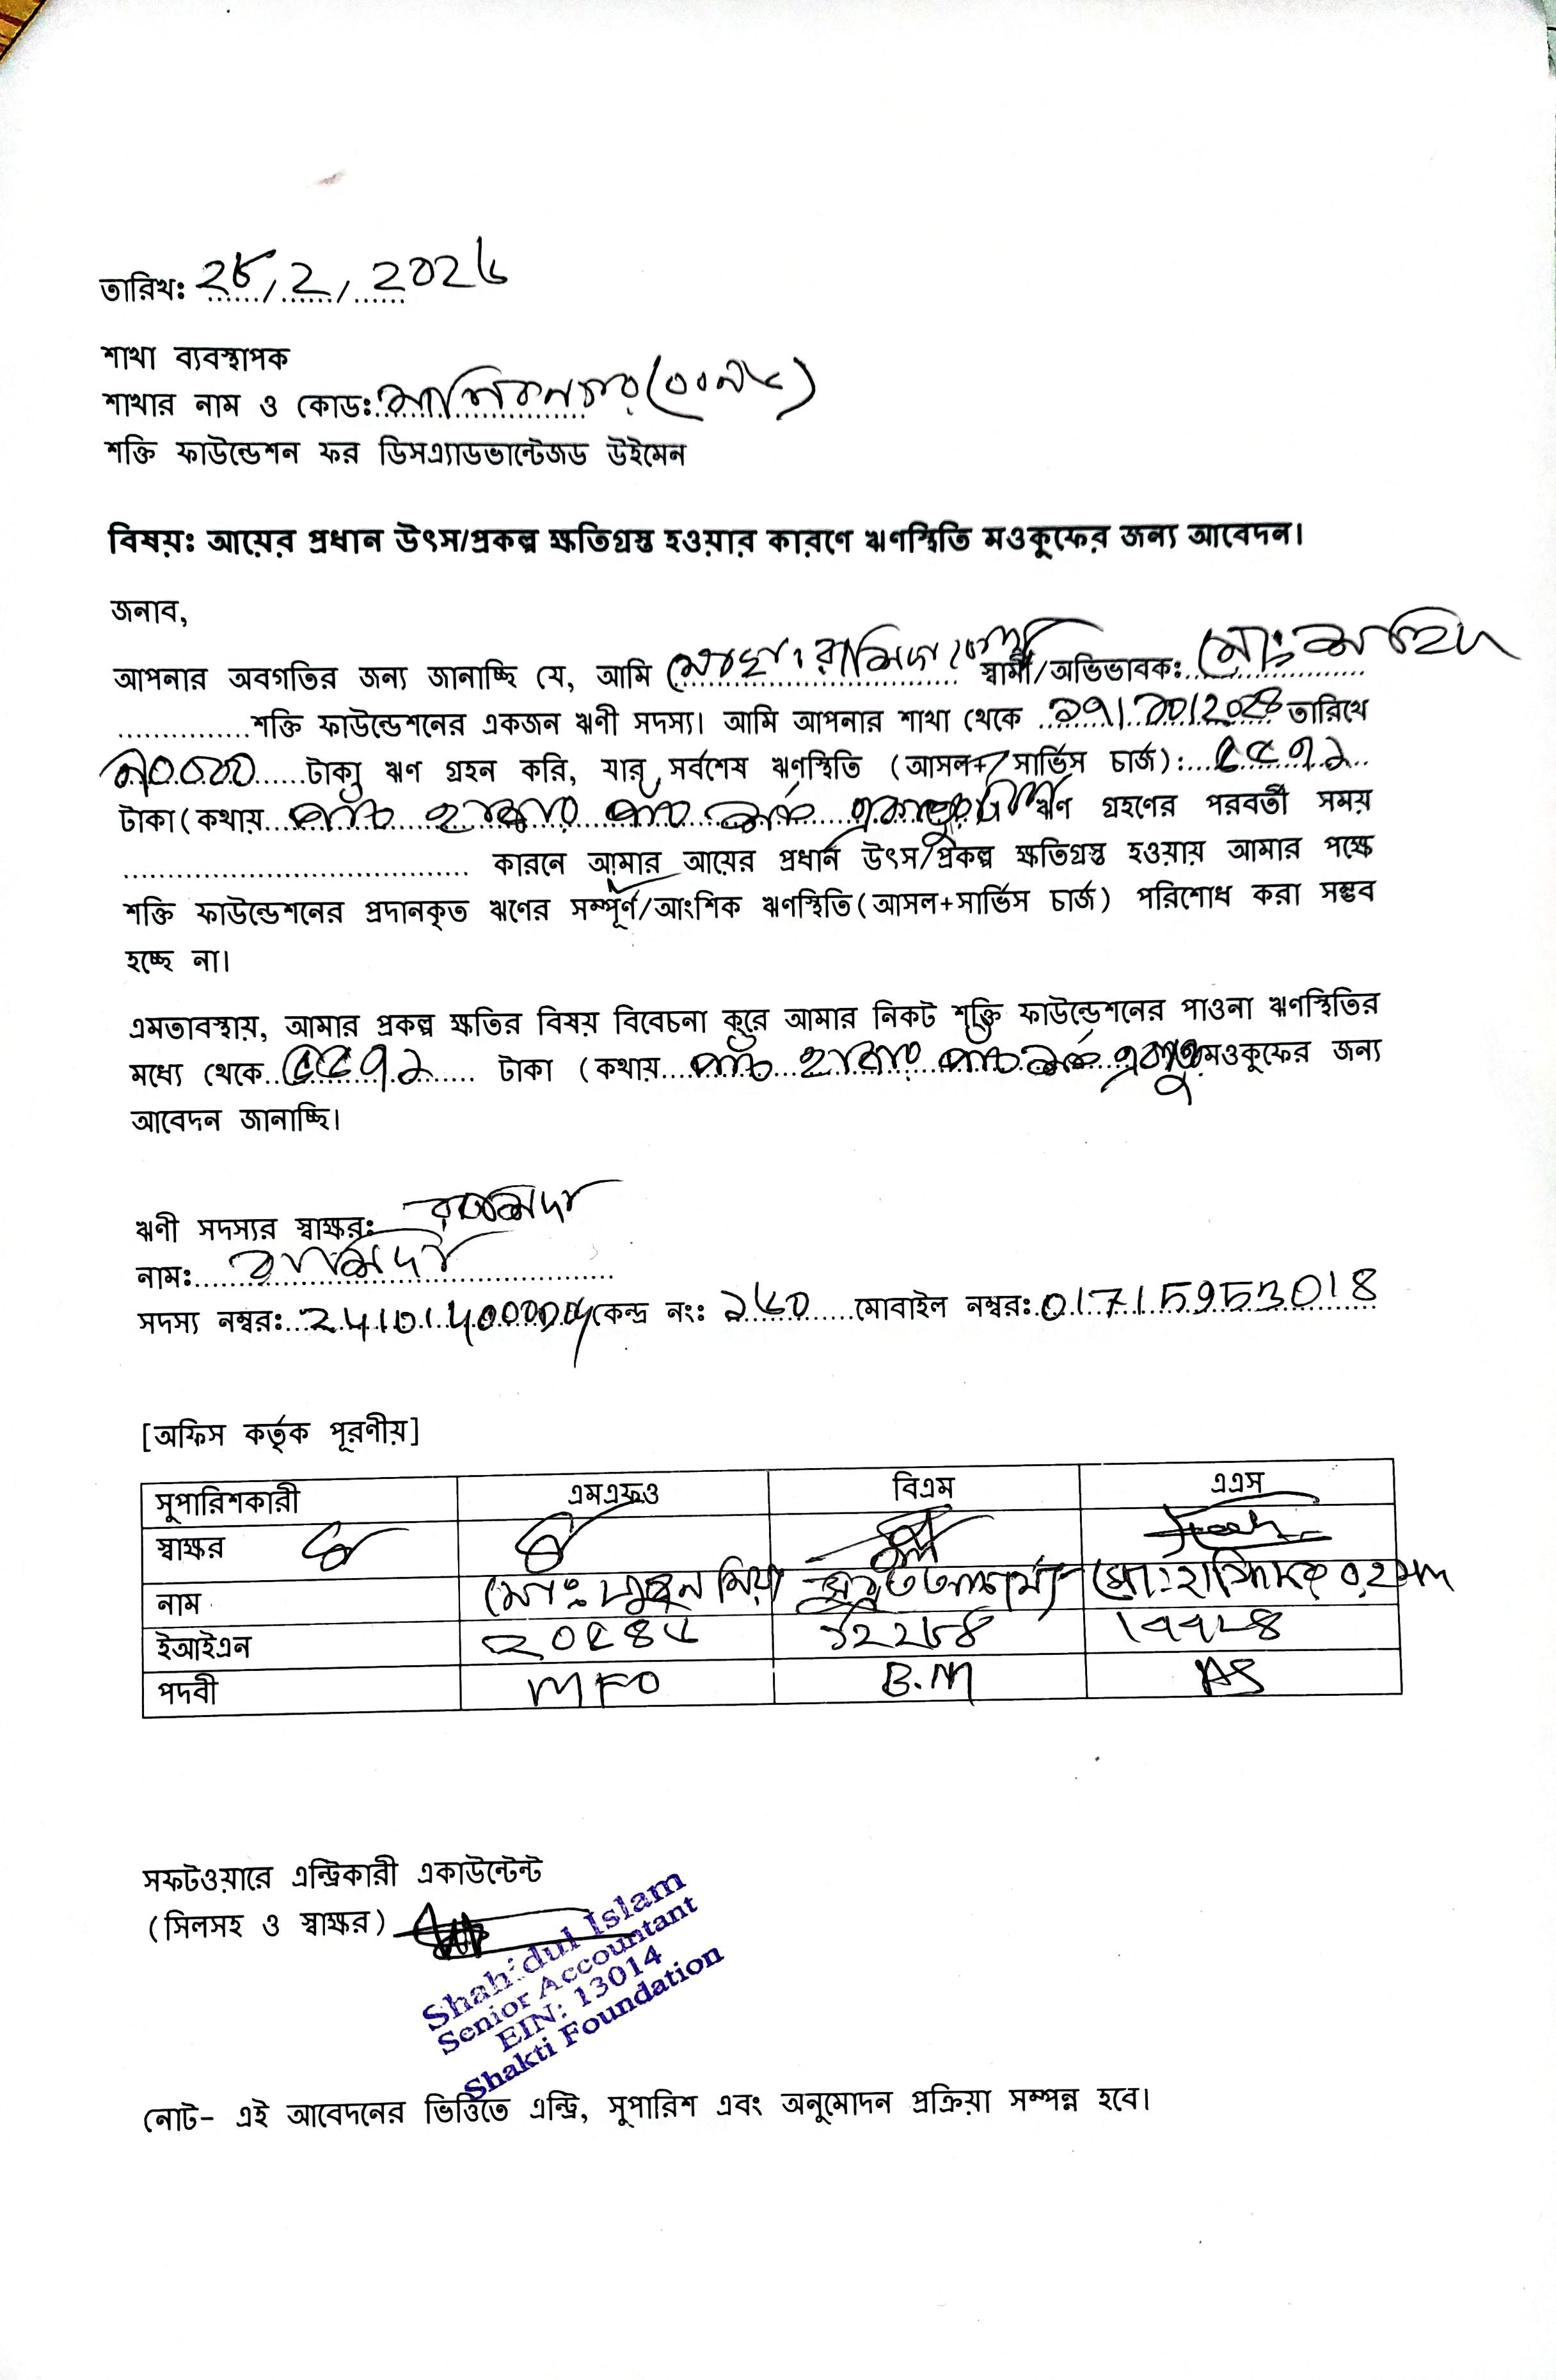 তারিখঃ ২৮/2/২০২৬
শাখা ব্যবস্থাপক
শাখার নাম ও কোডঃ
শক্তি ফাউন্ডেশন ফর ডিসএ্যাডভান্টেজড উইমেন
বিষয়ঃ আয়ের প্রধান উৎস/প্রকল্প ক্ষতিগ্রস্ত হওয়ার কারণে ঋণস্থিতি মওকুফের জন্য আবেদন।
জনাব,
আপনার অবগতির জন্য জানাচ্ছি যে, আমি মোছাঃ রাশিদা স্বামী/অভিভাবকঃ মোঃ
শক্তি ফাউন্ডেশনের একজন ঋণী সদস্য। আমি আপনার শাখা থেকে তারিখে
টাকা ঋণ গ্রহন করি, যার সর্বশেষ ঋণস্থিতি (আসল+সার্ভিস চার্জ): ৫৫৭১
টাকা(কথায় পাঁচ হাজার পাঁচ শত একাত্তুর ঋণ গ্রহণের পরবর্তী সময়
কারনে আমার আয়ের প্রধান উৎস/প্রকল্প ক্ষতিগ্রস্ত হওয়ায় আমার পক্ষে
শক্তি ফাউন্ডেশনের প্রদানকৃত ঋণের সম্পূর্ণ/আংশিক ঋণস্থিতি(আসল+সার্ভিস চার্জ) পরিশোধ করা সম্ভব
হচ্ছে না।
এমতাবস্থায়, আমার প্রকল্প ক্ষতির বিষয় বিবেচনা করে আমার নিকট শক্তি ফাউন্ডেশনের পাওনা ঋণস্থিতির
মধ্যে থেকে ৫৫৭১ টাকা (কথায় পাঁচ হাজার পাঁচ শত একাত্তুর মওকুফের জন্য
আবেদন জানাচ্ছি।
ঋণী সদস্যর স্বাক্ষরঃ রাশিদা
নামঃ রাশিদা
সদস্য নম্বরঃ কেন্দ্র নংঃ ১৬০ মোবাইল নম্বরঃ 01715953018
[অফিস কর্তৃক পূরণীয়]
সুপারিশকারী এমএফও বিএম এএস
স্বাক্ষর
নাম মোঃ মিয়া
ইআইএন ২০৫৪৫
পদবী MFO B.M AS
সফটওয়ারে এন্ট্রিকারী একাউন্টেন্ট
(সিলসহ ও স্বাক্ষর)
Shahidul Islam
Senior Accountant
EIN: 13014
Shakti Foundation
নোট- এই আবেদনের ভিত্তিতে এন্ট্রি, সুপারিশ এবং অনুমোদন প্রক্রিয়া সম্পন্ন হবে।